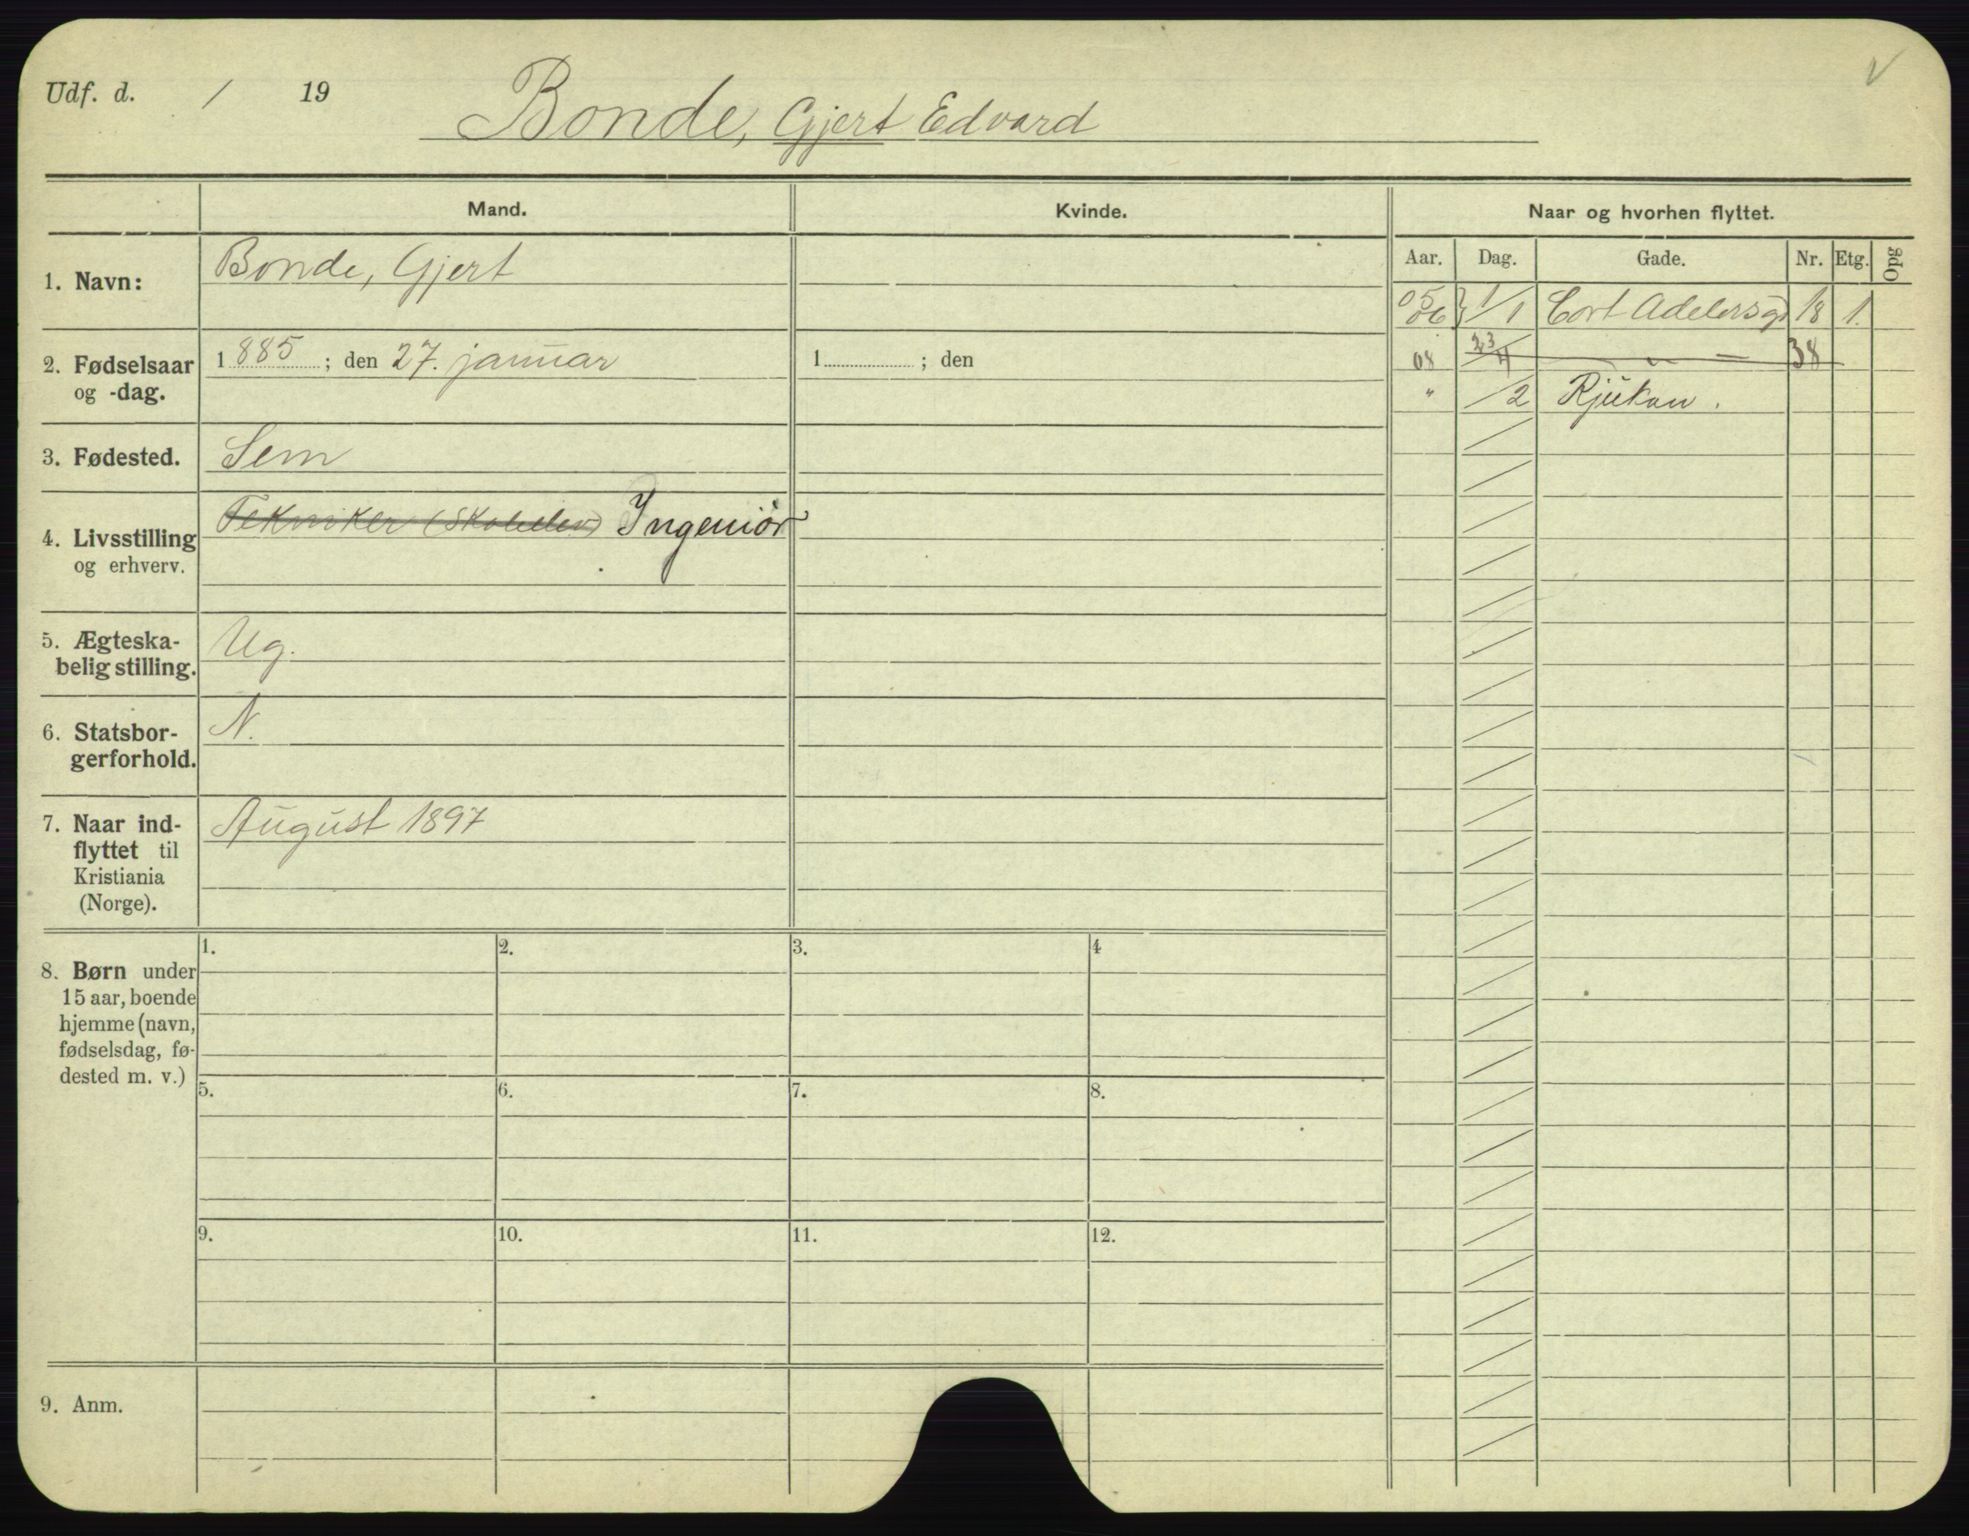 Udf. d. / 19
Bonde, Gjert Edvard
Mand.
Kvinde.
Naar og hvorhen flyttet.
Aar. Dag. Gade. Nr. Etg. Opg
1. Navn:
Bonde, Gjert
05 06 } 1/1 Cort Adelersg. 18 1.
2. Fødselsaar
og -dag.
1885; den 27. januar
1 ; den
08 23/4 " — 38
" /2 Rjukan.
3. Fødested.
Sem
4. Livsstilling
og erhverv.
Tekniker (Skoleelev) Ingeniør
5. Ægteska-
belig stilling.
Ug.
6. Statsbor-
gerforhold.
N.
7. Naar ind-
flyttet til
Kristiania
(Norge).
August 1897
8. Børn under
15 aar, boende
hjemme (navn,
fødselsdag, fø-
dested m. v.)
1. 2. 3. 4
5. 6. 7. 8.
9. 10. 11. 12.
9. Anm.